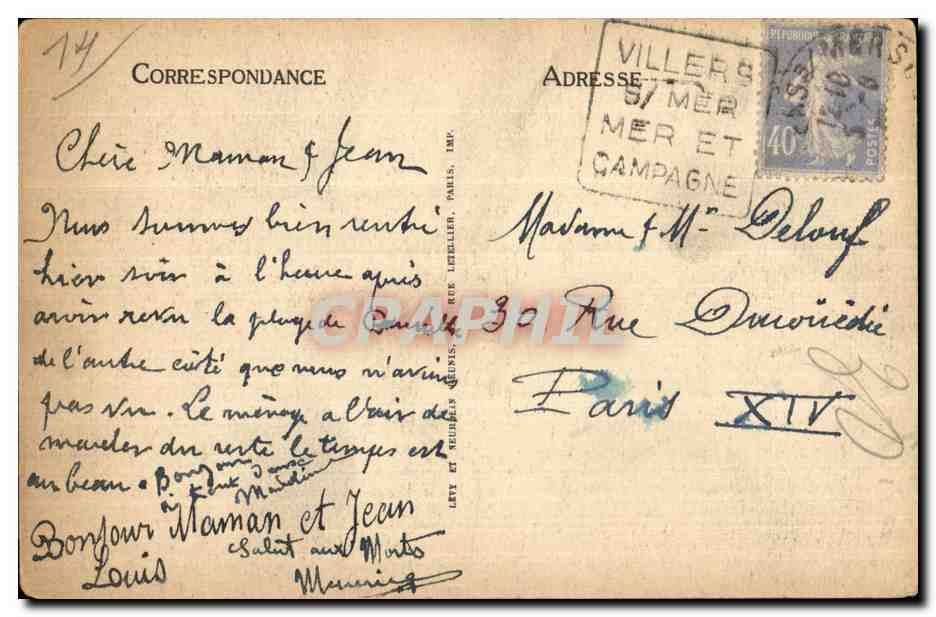 14
CORRESPONDANCE
ADRESSE
VILLERS
S/ MER
MER ET
CAMPAGNE
REPUBLIQUE FRANCAISE
40
POSTES
Chère Maman & Jean
Nous sommes bien rentré
hier soir à l'heure après
avoir revu la plage de
de l'autre côté que nous n'avions
pas vu. Le ménage a l'air de
marcher du reste le temps est
au beau. Bonjour
à tout
Bonjour Maman et Jean
Louis
Salut aux Morts
Maurice
LÉVY ET NEURDEIN RÉUNIS, RUE LETELLIER, PARIS, IMP.
Madame & Mr Delouf
30 Rue
Paris XIV
CPARAMA